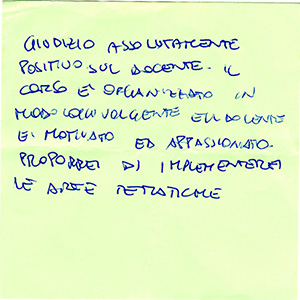 GIUDIZIO ASSOLUTAMENTE
POSITIVO SUL DOCENTE. IL
CORSO È ORGANIZZATO IN
MODO COINVOLGENTE E IL DOCENTE
E' MOTIVATO ED APPASSIONATO.
PROPORREI DI IMPLEMENTARE
LE AREE TEMATICHE